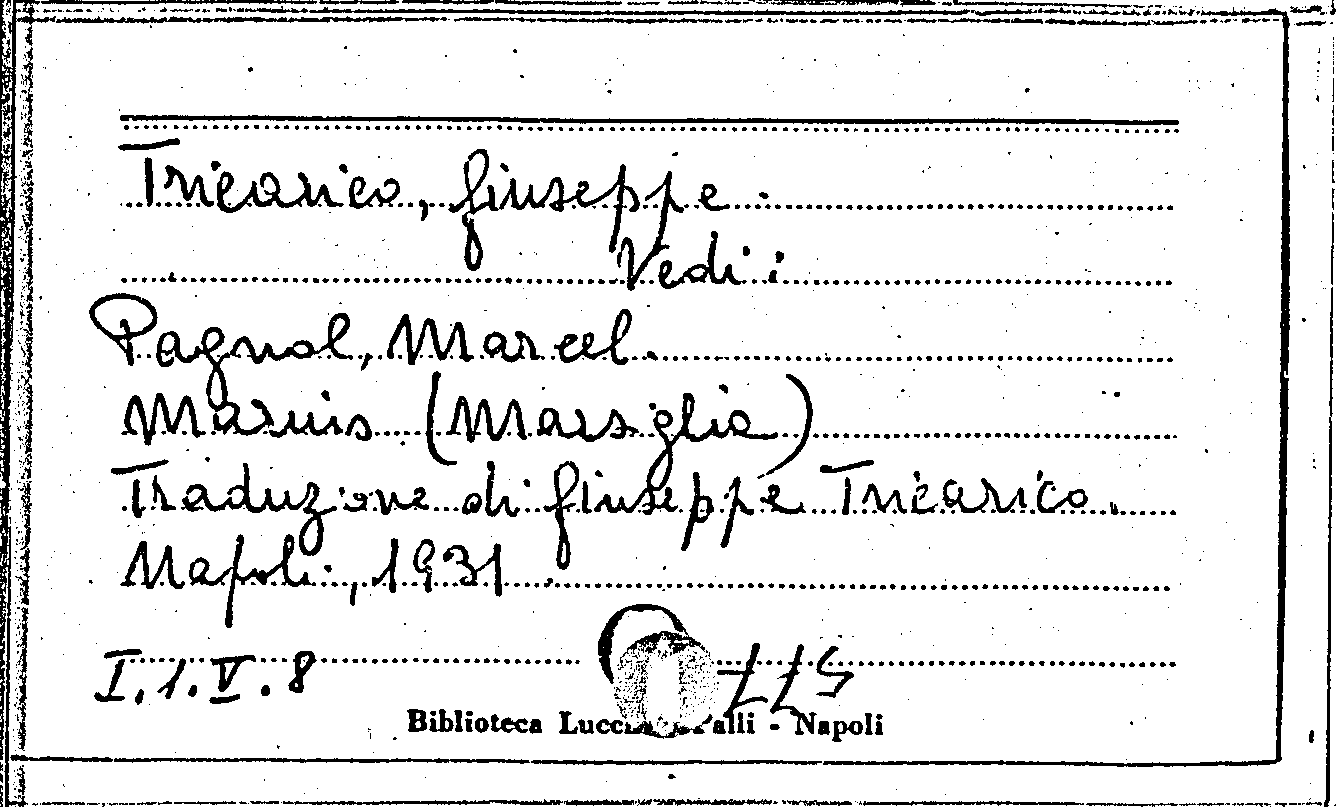 Tricarico, Giuseppe.
Vedi:
Pagnol, Marcel.
Marius (Marsiglia)
Traduzione di Giuseppe Tricarico.
Napoli, 1931.
I.1.V.8
Biblioteca Palli - Napoli